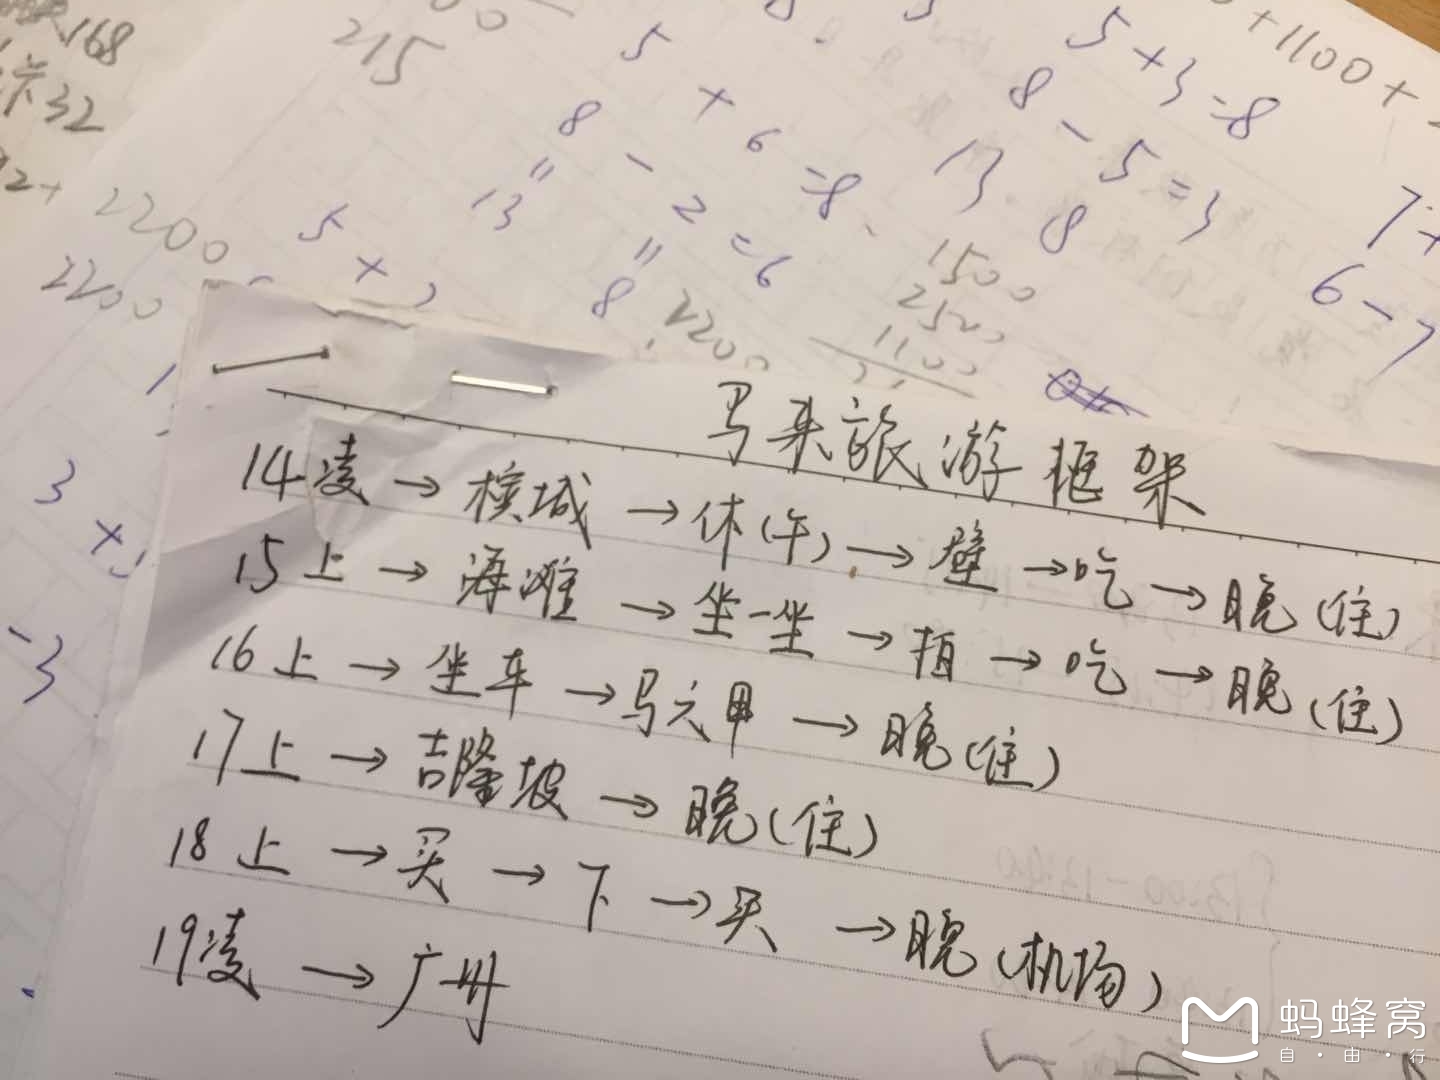 168
卡32
2200
2200
215
5 + 6 = 8
8 - 2 = 6
13
8
5 + 3 = 8
8 - 5 = 3
13
8
+1100+
7+
6-7
1500
2500
1100
2200
5 +
3 +
-3
马来旅游框架
14凌→槟城→休(午)→壁→吃→晚(住)
15上→海滩→坐一坐→拍→吃→晚(住)
16上→坐车→马六甲→晚(住)
17上→吉隆坡→晚(住)
18上→买→下→买→晚(机场)
19凌→广州
蚂蜂窝
自·由·行